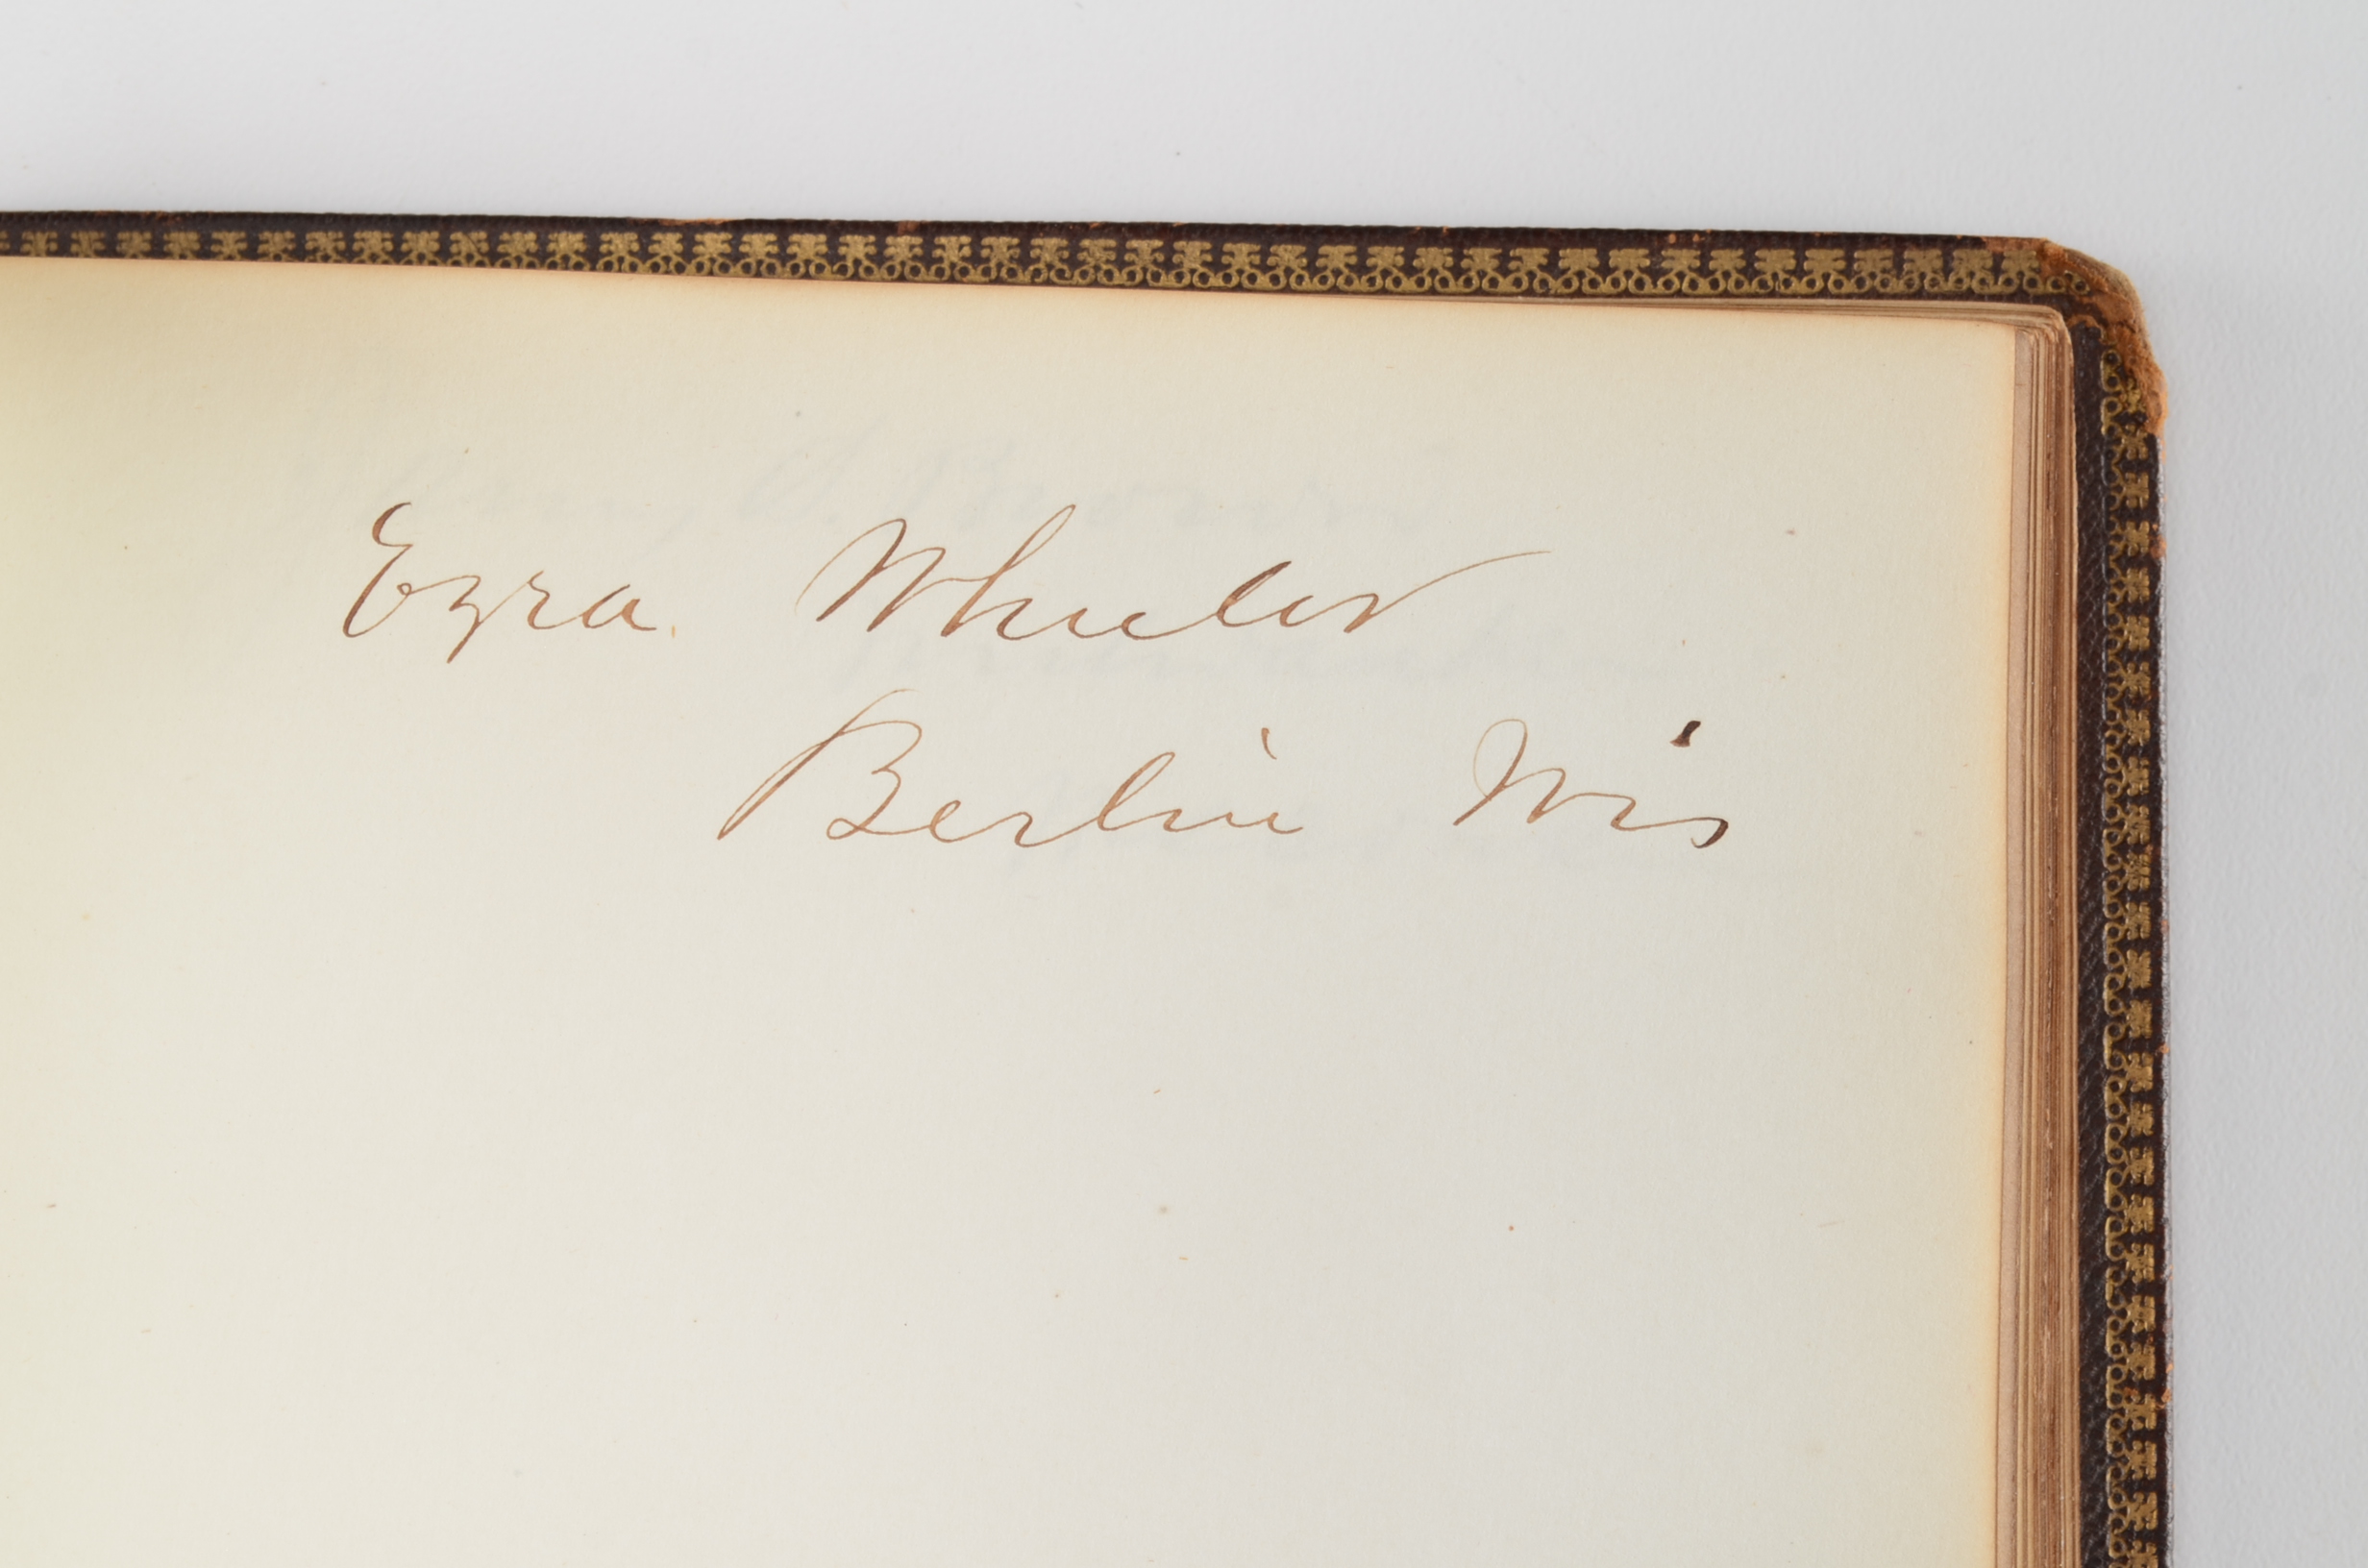 Ezra Wheeler
Berlin Wis